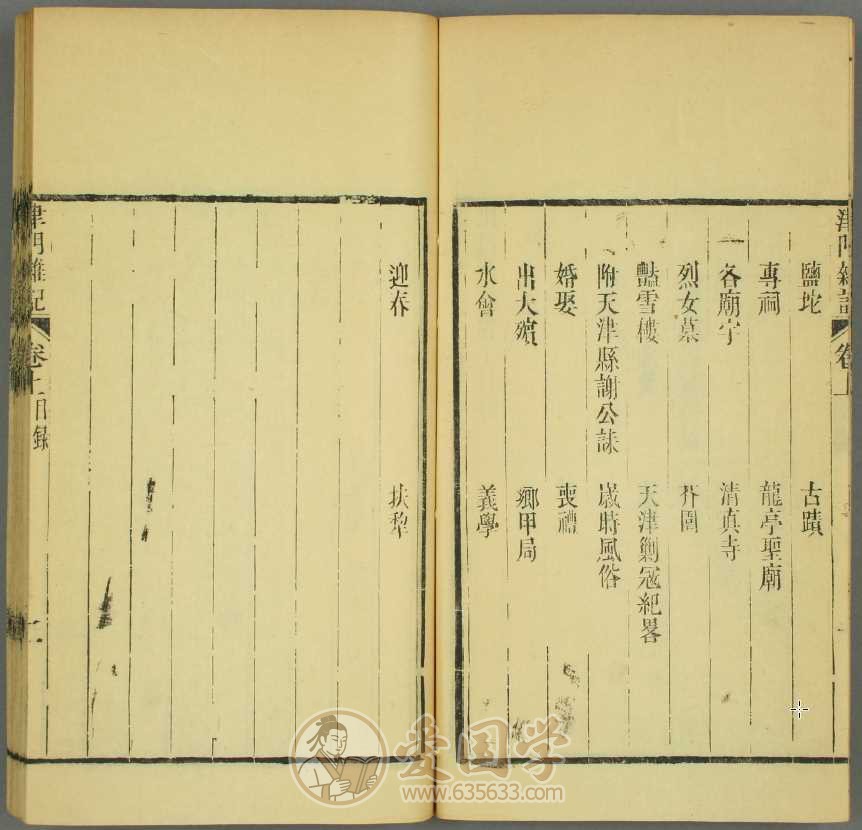 津門雜記 卷上
鹽坨 古蹟
專祠 龍亭聖廟
各廟宇 清真寺
烈女墓 芥園
豔雪樓 天津剿寇紀畧
附天津縣謝公誄 歲時風俗
婚娶 喪禮
出大殯 鄉甲局
水會 義學
迎春 扶犁
津門雜記 卷上 目錄 二
爱国学
www.635633.com